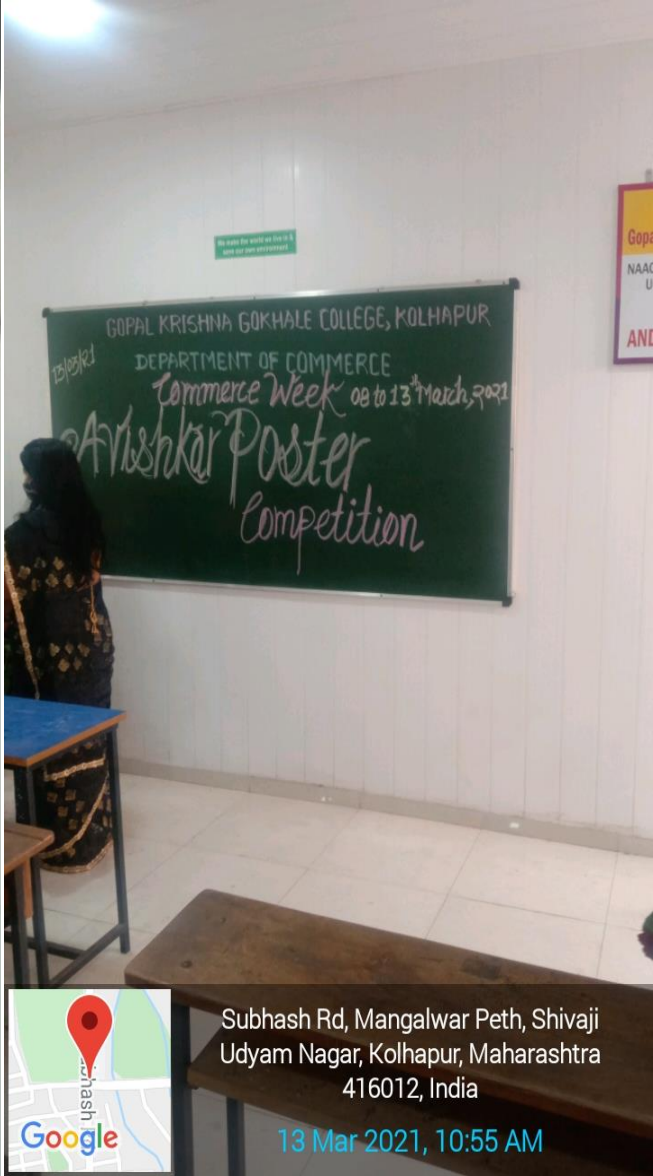 We make the world we live in &
save our own environment
GOPAL KRISHNA GOKHALE COLLEGE, KOLHAPUR
13/03/21
DEPARTMENT OF COMMERCE
Commerce Week 08 to 13th March, 2021
Avishkar Poster
Competition
Gopa
NAAC
U
AND
Subhash Rd, Mangalwar Peth, Shivaji
Udyam Nagar, Kolhapur, Maharashtra
416012, India
13 Mar 2021, 10:55 AM
Google